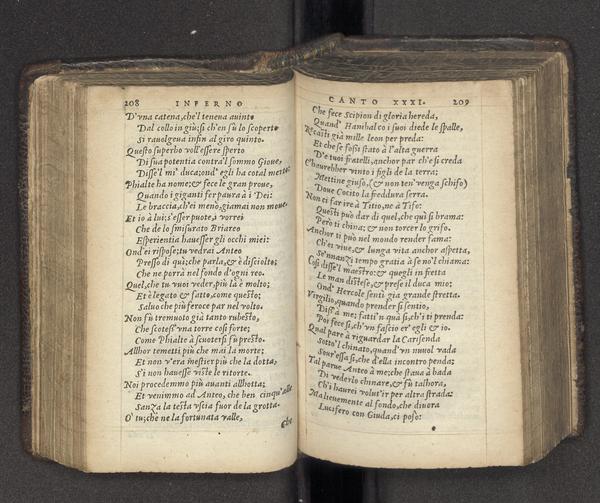 208 INFERNO
D'vna catena, che'l teneua auinto
Dal collo in giu; si ch'en sù lo scoperto
Si rauolgeua infin al giro quinto.
Questo superbo voll'essere sperto
Di sua potentia contra'l sommo Gioue,
Disse'l mi' duca; ond' egli ha cotal merto:
Phialte ha nome; & fece le gran proue,
Quando i giganti fer paura à i Dei:
Le braccia, ch'ei menò, giamai non moue.
Et io à lui; s'esser puote, i vorrei
Che de lo smisurato Briareo
Esperientia hauesser gli occhi miei:
Ond' ei rispose; tu vedrai Anteo
Presso di quì; che parla, & è disciolto;
Che ne porrà nel fondo d'ogni reo.
Quel, che tu vuoi veder, più là è molto;
Et è legato & fatto, come questo;
Saluo che più feroce par nel volto.
Non fù tremuoto già tanto rubesto,
Che scotess' vna torre così forte;
Come Phialte à scuotersi fu presto.
Allhor temetti più che mai la morte;
Et non v'era mestier più che la dotta,
S'i non hauesse viste le ritorte.
Noi procedemmo più auanti allhotta;
Et venimmo ad Anteo, che ben cinqu' alle
Sanza la testa vscia fuor de la grotta.
O' tu; che ne la fortunata valle,
Che
CANTO XXXI. 209
Che fece Scipion di gloria hereda,
Quand' Hanibal co i suoi diede le spalle,
Recasti già mille leon per preda:
Et che se fossi stato à l'alta guerra
D'e tuoi fratelli, anchor par ch'e si creda
C'haurebber vinto i figli de la terra;
Mettine giuso, (& non ten' venga schifo)
Doue Cocito la freddura serra.
Non ci far ire à Titio, ne à Tifo:
Questi può dar di quel, che quì si brama:
Però ti china; & non torcer lo grifo.
Anchor ti può nel mondo render fama:
Ch'ei viue, & lunga vita anchor aspetta,
Se'nnanzi tempo gratia à se no'l chiama:
Così disse'l maestro: & quegli in fretta
Le man distese, & prese il duca mio;
Ond' Hercole sentì gia grande stretta.
Virgilio, quando prender si sentio,
Diss' à me; fatti'n quà si, ch'i ti prenda:
Poi fece si, ch'vn fascio er' egli & io.
Qual pare à riguardar la Carisenda
Sotto'l chinato, quand' vn nuuol vada
Sour' essa si, che d'ella incontro penda;
Tal parue Anteo à me; che staua à bada
Di vederlo chinare, & fù talhora,
Ch'i haurei volut' ir per altra strada:
Ma lieuemente al fondo, che diuora
Lucifero con Giuda, ci posò: